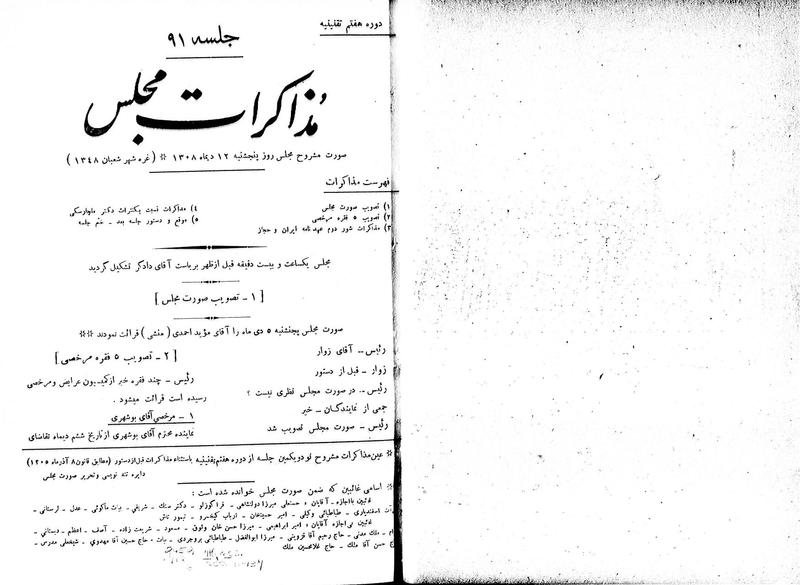 دوره هفتم تقنینیه
جلسه ۹۱
مذاکرات مجلس
صورت مشروح مجلس روز پنجشنبه ۱۲ دیماه ۱۳۰۸ * (غره شهر شعبان ۱۳۴۸)
فهرست مذاکرات
۱) تصویب صورت مجلس
۲) تصویب ۵ فقره مرخصی
۳) مذاکرات شور دوم عهدنامه ایران و حجاز
۴) مذاکرات نسبت بکنترات دکتر
۵) موقع و دستور جلسه بعد - ختم جلسه
مجلس یکساعت و بیست دقیقه قبل از ظهر بریاست آقای دادگر تشکیل گردید
[ ۱ - تصویب صورت مجلس ]
صورت مجلس پنجشنبه ۵ دی ماه را آقای مؤید احمدی (منشی) قرائت نمودند **
رئیس - آقای زوار
زوار - قبل از دستور
رئیس - در صورت مجلس نظری نیست ؟
جمعی از نمایندگان - خیر
رئیس - صورت مجلس تصویب شد
[ ۲ - تصویب ۵ فقره مرخصی ]
رئیس - چند فقره خبر از کمیسیون عرایض و مرخصی
رسیده است قرائت میشود .
۱ - مرخصی آقای بوشهری
نماینده محترم آقای بوشهری از تاریخ ششم دیماه تقاضای
* عین مذاکرات مشروح نودویکمین جلسه از دوره هفتم تقنینیه باستثناء مذاکرات قبل از دستور (مطابق قانون ۸ آذر ماه ۱۳۰۵)
دایره تند نویسی و تحریر صورت مجلس
* اسامی غائبین که ضمن صورت مجلس خوانده شده است :
غائبین بااجازه - آقایان : میرزا دولتشاهی - قراگوزلو - دکتر سنگ - شریفی - بیات ماکوئی - عدل - لرستانی -
اسفندیاری - طباطبائی وکیلی - امیر حسینخان - ارباب کیخسرو - تیمور تاش
غائبین بی اجازه آقایان : امیر ابراهیمی - میرزا حسن خان وثوق - مسعود - شریعت زاده - آصف - اعظم - دبستانی -
ملک مدنی - حاج رحیم آقا قزوینی - میرزا ابوالفضل - طباطبائی بروجردی - بیات - حاج حسین آقا مهدوی - شیخعلی مدرس -
حسن آقا ملک - حاج غلامحسین ملک